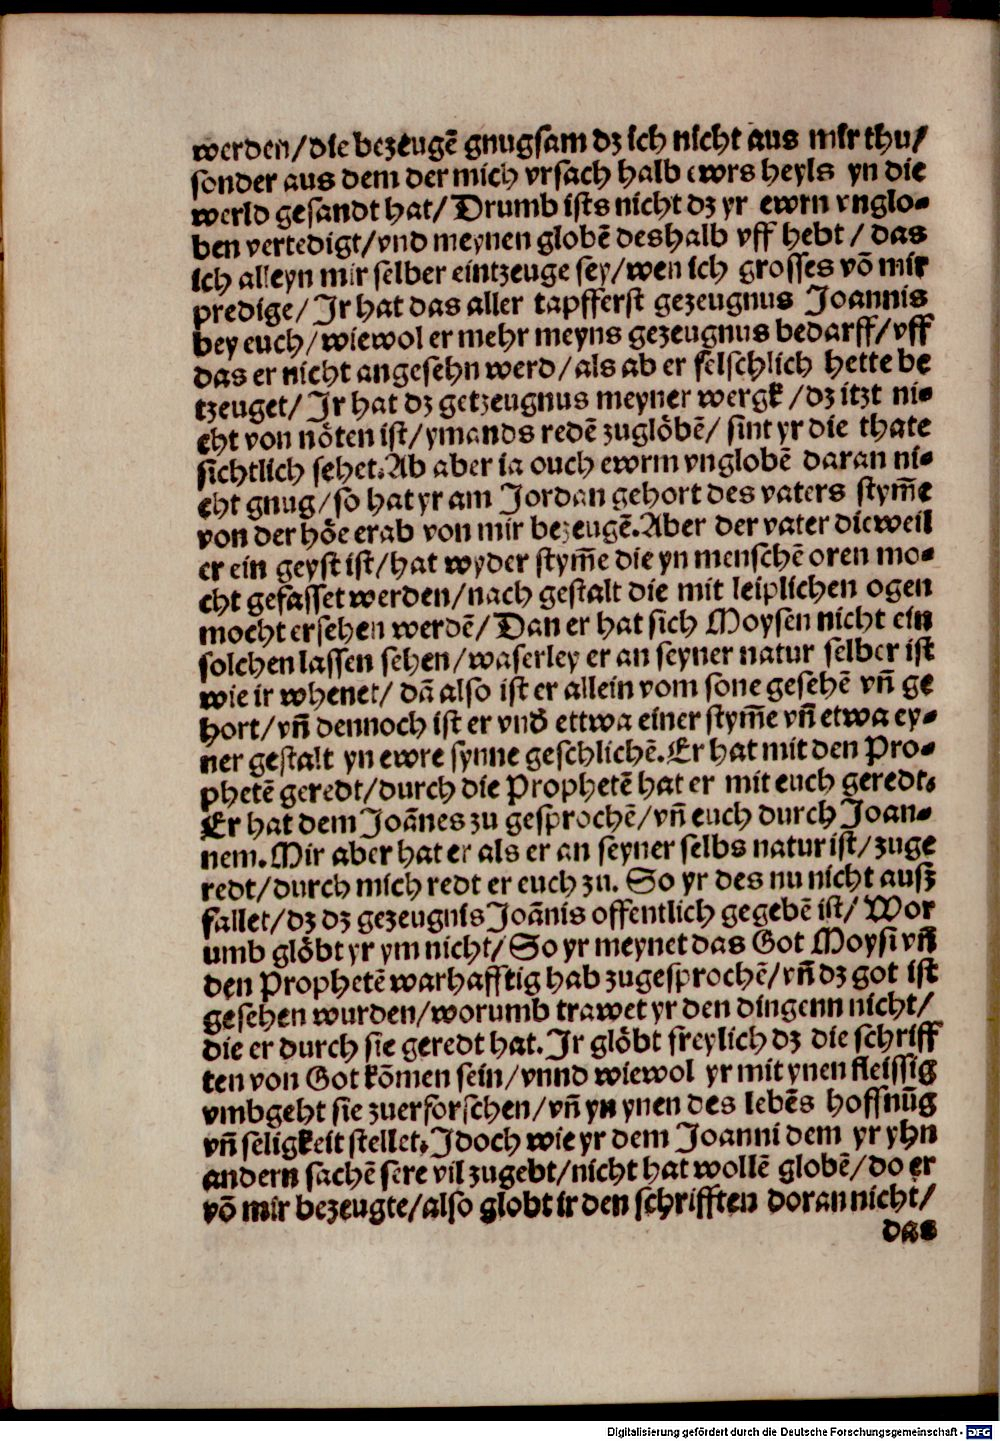 werden/die bezeugē gnugsam dz ich nicht aus mir thu/
sonder aus dem der mich vrsach halb ewrs heyls yn die
werld gesandt hat/ Drumb ists nicht dz yr ewrn vnglo-
ben vertedigt/vnd meynen globē deshalb vff hebt / das
ich alleyn mir selber eintzeuge sey/wen ich grosses vō mir
predige/ Jr hat das aller tapfferst gezeugnus Joannis
bey euch/wiewol er mehr meyns gezeugnus bedarff/vff
das er nicht angesehn werd/als ab er felschlich hette be
tzeuget/ Jr hat dz getzeugnus meyner wergk /dz itzt ni-
cht von nöten ist/ymands redē zuglöbē/ sint yr die thate
sichtlich sehet. Ab aber ia ouch ewrm vnglobē daran ni-
cht gnug/so hat yr am Jordan gehort des vaters stym̄e
von der höe erab von mir bezeugē. Aber der vater dieweil
er ein geyst ist/hat wyder stym̄e die yn menschē oren mo-
cht gefasset werden/nach gestalt die mit leiplichen ogen
mocht ersehen werdē/ Dan er hat sich Moysen nicht ein
solchen lassen sehen/waserley er an seyner natur selber ist
wie ir whenet/ dā also ist er allein vom sone gesehē vn̄ ge
hort/vn̄ dennoch ist er vnd̄ ettwa einer stym̄e vn̄ etwa ey-
ner gestalt yn ewre synne geschlichē. Er hat mit den Pro-
phetē geredt/durch die Prophetē hat er mit euch geredt.
Er hat dem Joānes zu gesprochē/vn̄ euch durch Joan-
nem. Mir aber hat er als er an seyner selbs natur ist/zuge
redt/durch mich redt er euch zu. So yr des nu nicht ausz
fallet/dz dz gezeugnis Joānis offentlich gegebē ist/ Wor
umb glöbt yr ym nicht/ So yr meynet das Got Moysi vn̄
den Prophetē warhafftig hab zugesprochē/vn̄ dz got ist
gesehen wurden/worumb trawet yr den dingenn nicht/
die er durch sie geredt hat. Jr glöbt freylich dz die schriff
ten von Got kōmen sein/vnnd wiewol yr mit ynen fleissig
vmbgeht sie zuerforschen/vn̄ yn ynen des lebēs hoffnūg
vn̄ seligkeit stellet. Jdoch wie yr dem Joanni dem yr yhn
andern sachē sere vil zugebt/nicht hat wollē globē/do er
vō mir bezeugte/also globt ir den schrifften doran nicht/
das
Digitalisierung gefördert durch die Deutsche Forschungsgemeinschaft - DFG